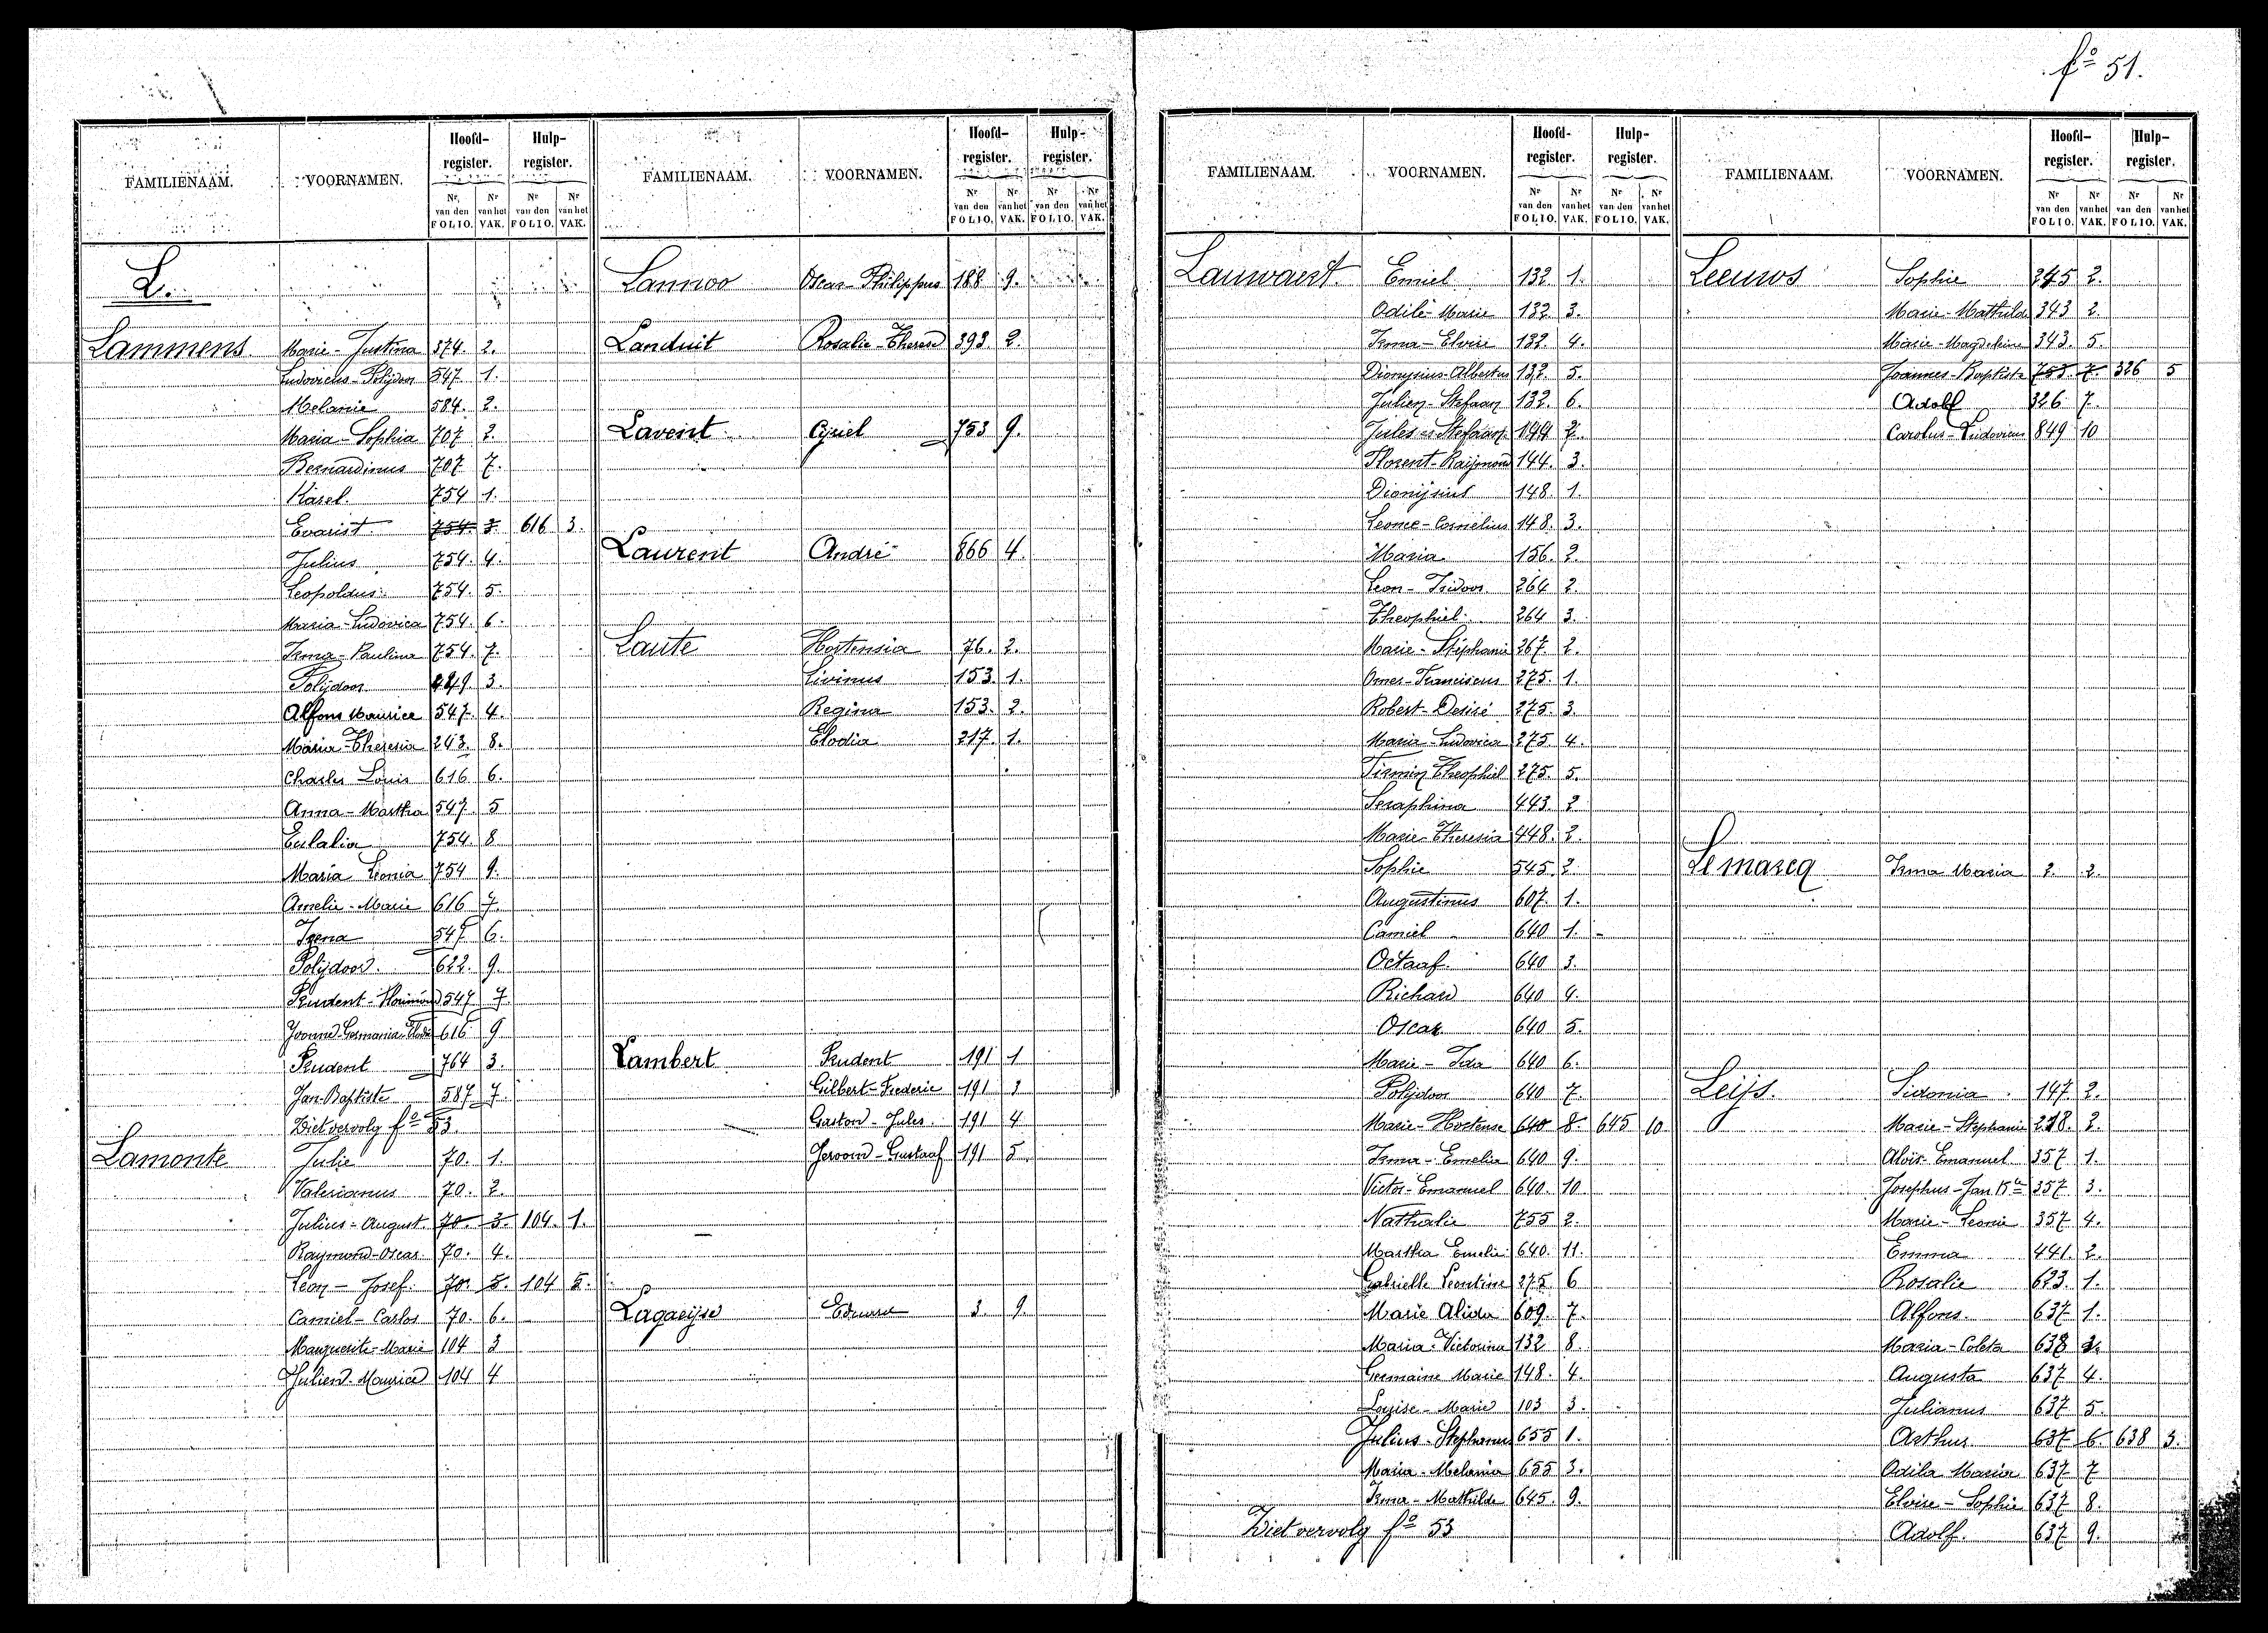 fo 51.
FAMILIENAAM. VOORNAMEN. Hoofd-register. Hulp-register.
Nr van den FOLIO. Nr van het VAK. Nr van den FOLIO. Nr van het VAK.
L.
Lammens Marie-Justina 374. 2.
Ludovicus-Polijdoor 547. 1.
Melanie 584. 2.
Maria-Sophia 707. 2.
Bernardinus 707. 7.
Karel. 754 1.
Evarist 754. 3. 616 3.
Julius 754. 4.
Leopoldus 754. 5.
Maria-Ludovica 754. 6.
Irma-Paulina 754. 7.
Polijdoor 3.
Alfons Maurice 547. 4.
Maria-Theresia 243. 8.
Charles Louis 616 6.
Anna-Martha 547. 5
Eulalia 754. 8
Maria Leonia 754 9.
Amelie-Marie 616 7.
Irena 547 6.
Polijdoor. 622. 9.
Prudent- 547 7
Yvonne-Germania- 616 9
Prudent 764 3.
Jan-Baptiste 587 7.
Ziet vervolg fo 53
Lamonte Julie 70. 1.
Valerianus 70. 2.
Julius-August. 70. 3. 104. 1.
Raymond-Oscar. 70. 4.
Leon-Josef. 70. 5. 104 5.
Camiel-Carlos 70. 6.
Marguerite-Marie 104 3
Julien-Maurice 104 4
FAMILIENAAM. VOORNAMEN. Hoofd-register. Hulp-register.
Nr van den FOLIO. Nr van het VAK. Nr van den FOLIO. Nr van het VAK.
Lannoo Oscar-Philippus 188 9.
Landuit Rosalie-Therese 393 2.
Lavent Cyriel 753 9.
Laurent André 866 4.
Laute Hortensia 76. 2.
Livinus 153. 1.
Regina 153. 2.
Elodia 217. 1.
Lambert Prudent 191 1
Gilbert-Frederic 191 3
Gaston-Jules. 191 4
Jeroom-Gustaaf 191 5
Lagaeijse Eduard 3. 9.
FAMILIENAAM. VOORNAMEN. Hoofd-register. Hulp-register.
Nr van den FOLIO. Nr van het VAK. Nr van den FOLIO. Nr van het VAK.
Lauwaert. Emiel 132 1.
Odile-Marie 132 3.
Irma-Elvire 132. 4.
Dionysius-Albertus 132. 5.
Julien-Stefaan 132. 6.
Jules-Stefaan 144 2.
Florent-Raijmond 144. 3.
Dionijsius 148. 1.
Leonie-Cornelius 148. 3.
Maria 156. 2.
Leon-Isidoor. 264 2.
Theophiel 264 3.
Marie-Stéphanie 267. 2.
Omer-Franciscus 275. 1.
Robert-Desiré 275. 3.
Maria-Ludovica 275. 4.
Firmin Theophiel 275. 5.
Seraphina 443. 2
Marie-Theresia 448. 2.
Sophie 545. 2.
Augustinus 607. 1.
Camiel 640 1.
Octaaf. 640 3.
Richard 640 4.
Oscar 640 5.
Marie-Ida 640 6.
Polijdoor 640 7.
Marie-Hortense 640 8. 645 10
Irma-Emelia 640 9.
Victor-Emanuel 640. 10.
Nathalie 755 2.
Martha Emelie 640. 11.
Gabrielle Leontine 275. 6
Marie Alida 609. 7.
Maria-Victorina 132 8.
Germaine Marie 148. 4.
Louise-Marie 103 3.
Julius-Stephanus 655 1.
Maria-Melania 655 3.
Irma-Mathilde 645. 9.
Ziet vervolg fo 53
FAMILIENAAM. VOORNAMEN. Hoofd-register. Hulp-register.
Nr van den FOLIO. Nr van het VAK. Nr van den FOLIO. Nr van het VAK.
Leeuws Sophie 2.
Marie-Mathilde 343 2.
Marie-Magdeleine 343. 5.
Joannes-Baptiste 753. 7. 326 5
Adolf 326 7.
Carolus-Ludovicus 849 10
Lemarcq Irma Maria 2. 2.
Leijs. Sidonia 147 2.
Marie-Stephanie 218. 2.
Alois-Emanuel 357 1.
Josephus-Jan Bte 357 3.
Marie-Leonie 357 4.
Emma 441. 2.
Rosalie 623. 1.
Alfons. 637 1.
Maria-Coleta 638
Augusta 637 4.
Julianus 637 5.
Arthur 637 6 638 3.
Odila Maria 637 7
Elvire-Sophie 637 8.
Adolf. 637 9.